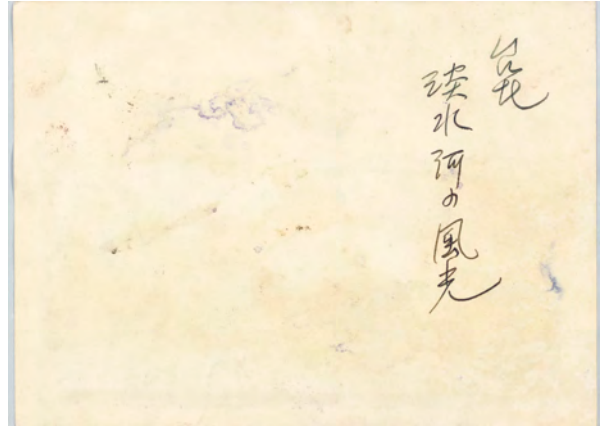 台北
淡水河の風光